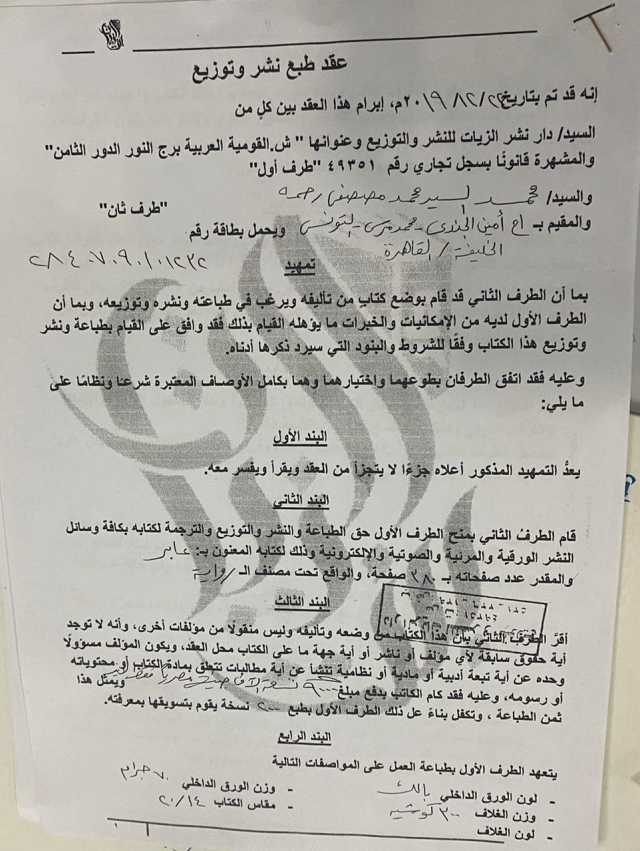 عقد طبع نشر وتوزيع
إنه قد تم بتاريخ ٢٢/١٢/٢٠١٩م، إبرام هذا العقد بين كل من
السيد/ دار نشر الزيات للنشر والتوزيع وعنوانها " ش.القومية العربية برج النور الدور الثامن"
والمشهرة قانونًا بسجل تجاري رقم ٤٩٣٥١ "طرف أول"
والسيد/ محمد السيد محمد مصطفى رحمه
"طرف ثان"
والمقيم بـ اح أمين الجندى - محمد مرسى - التونسى ويحمل بطاقة رقم
الخليفة / القاهرة
٢٨٤٠٧٠٩٠١٠١٢٣٢
تمهيد
بما أن الطرف الثاني قد قام بوضع كتاب من تأليفه ويرغب في طباعته ونشره وتوزيعه، وبما أن
الطرف الأول لديه من الإمكانيات والخبرات ما يؤهله القيام بذلك فقد وافق على القيام بطباعة ونشر
وتوزيع هذا الكتاب وفقًا للشروط والبنود التي سيرد ذكرها أدناه.
وعليه فقد اتفق الطرفان بطوعهما وإختيارهما وهما بكامل الأوصاف المعتبرة شرعًا ونظامًا على
ما يلي:
البند الأول
يعدُّ التمهيد المذكور أعلاه جزءًا لا يتجزأ من العقد ويقرأ ويفسر معه.
البند الثاني
قام الطرفُ الثاني بمنح الطرف الأول حق الطباعة والنشر والتوزيع والترجمة لكتابه بكافة وسائل
النشر الورقية والمرئية والصوتية والإلكترونية وذلك لكتابه المعنون بـ: عابر
والمقدر عدد صفحاته بـ ٣٨٠ صفحة، والواقع تحت مصنف الـ رواية
البند الثالث
أقرَّ الطرفُ الثاني بأن هذا الكتاب من وضعه وتأليفه وليس منقولًا من مؤلفات أخرى، وأنه لا توجد
أية حقوق سابقة لأي مؤلف أو ناشر أو أية جهة ما على الكتاب محل العقد، ويكون المؤلف مسؤولًا
وحده عن أية تبعة أدبية أو مادية أو نظامية تنشأ عن أية مطالبات تتعلق بمادة الكتاب أو محتوياته
أو رسومه، وعليه فقد كام الكاتب بدفع مبلغ ٩٠٠٠ ويمثل هذا
ثمن الطباعة ، وتكفل بناءً عل ذلك الطرف الأول بطبع ٢٠٠٠ نسخة يقوم بتسويقها بمعرفته.
البند الرابع
يتعهد الطرف الأول بطباعة العمل على المواصفات التالية
- لون الورق الداخلي بالك - وزن الورق الداخلي ٧٠ جرام
- وزن الغلاف ٣٠٠ كوشيه - مقاس الكتاب ٢٠/١٤
- لون الغلاف